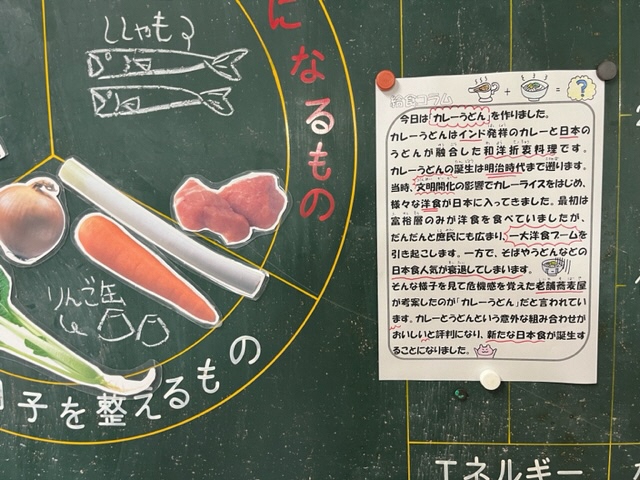 ししゃも
になるもの
りんご缶
子を整えるもの
給食コラム
+ = ?
今日は「カレーうどん」を作りました。
カレーうどんはインド発祥のカレーと日本の
うどんが融合した和洋折衷料理です。
カレーうどんの誕生は明治時代まで遡ります。
当時、文明開化の影響でカレーライスをはじめ、
様々な洋食が日本に入ってきました。最初は
富裕層のみが洋食を食べていましたが、
だんだんと庶民にも広まり、一大洋食ブームを
引き起こします。一方で、そばやうどんなどの
日本食人気が衰退してしまいます。
そんな様子を見て危機感を覚えた老舗蕎麦屋
が考案したのが「カレーうどん」だと言われてい
ます。カレーとうどんという意外な組み合わせが
おいしいと評判になり、新たな日本食が誕生す
ることになりました。
エネルギー